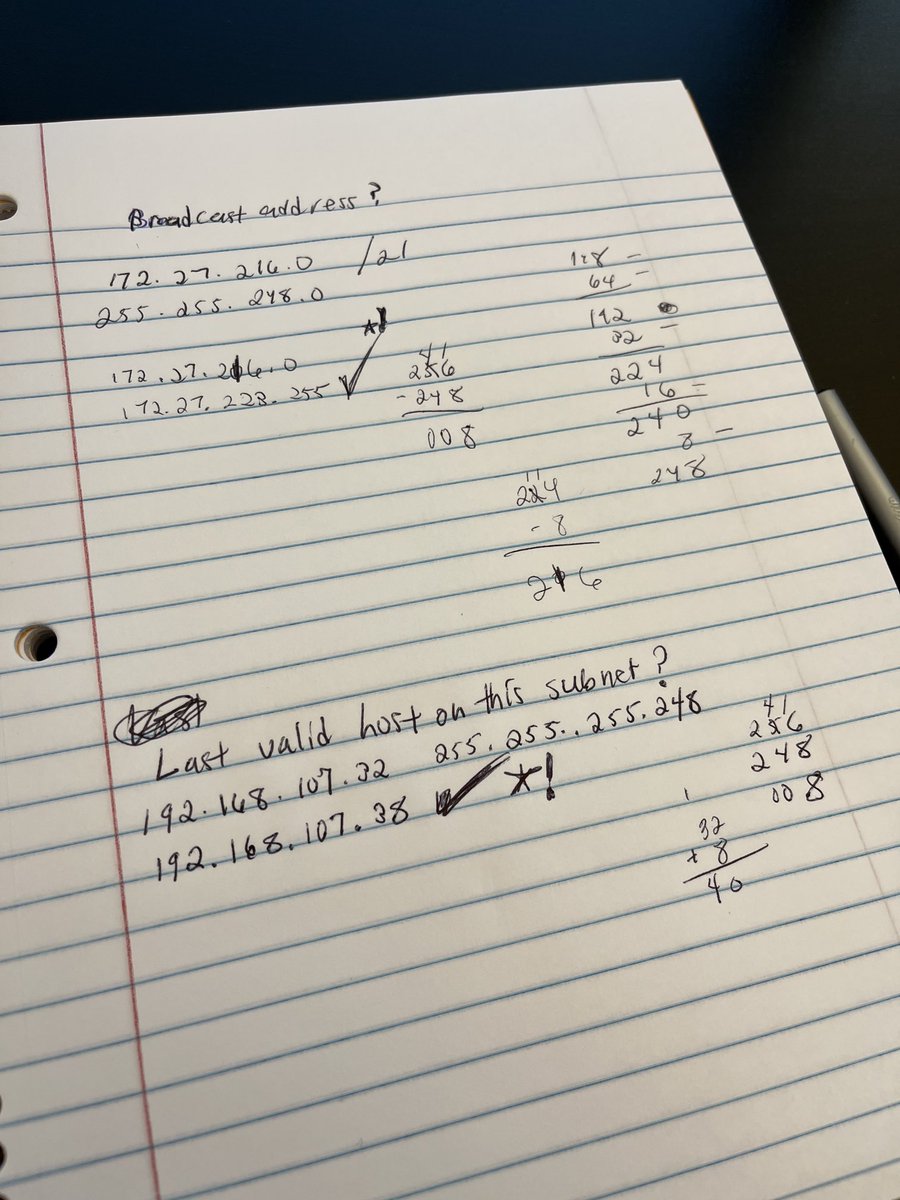 Broadcast address?
172.27.216.0 /21
255.255.248.0
172.27.216.0
172.27.223.255 ✓ *!
41
256
-248
008
128 -
64 -
192
32 -
224
16 -
240
8 -
248
11
224
- 8
216
Last valid host on this subnet?
192.168.107.32 255.255..255.248
192.168.107.38 ✓ *!
41
256
248
008
1
32
+ 8
40